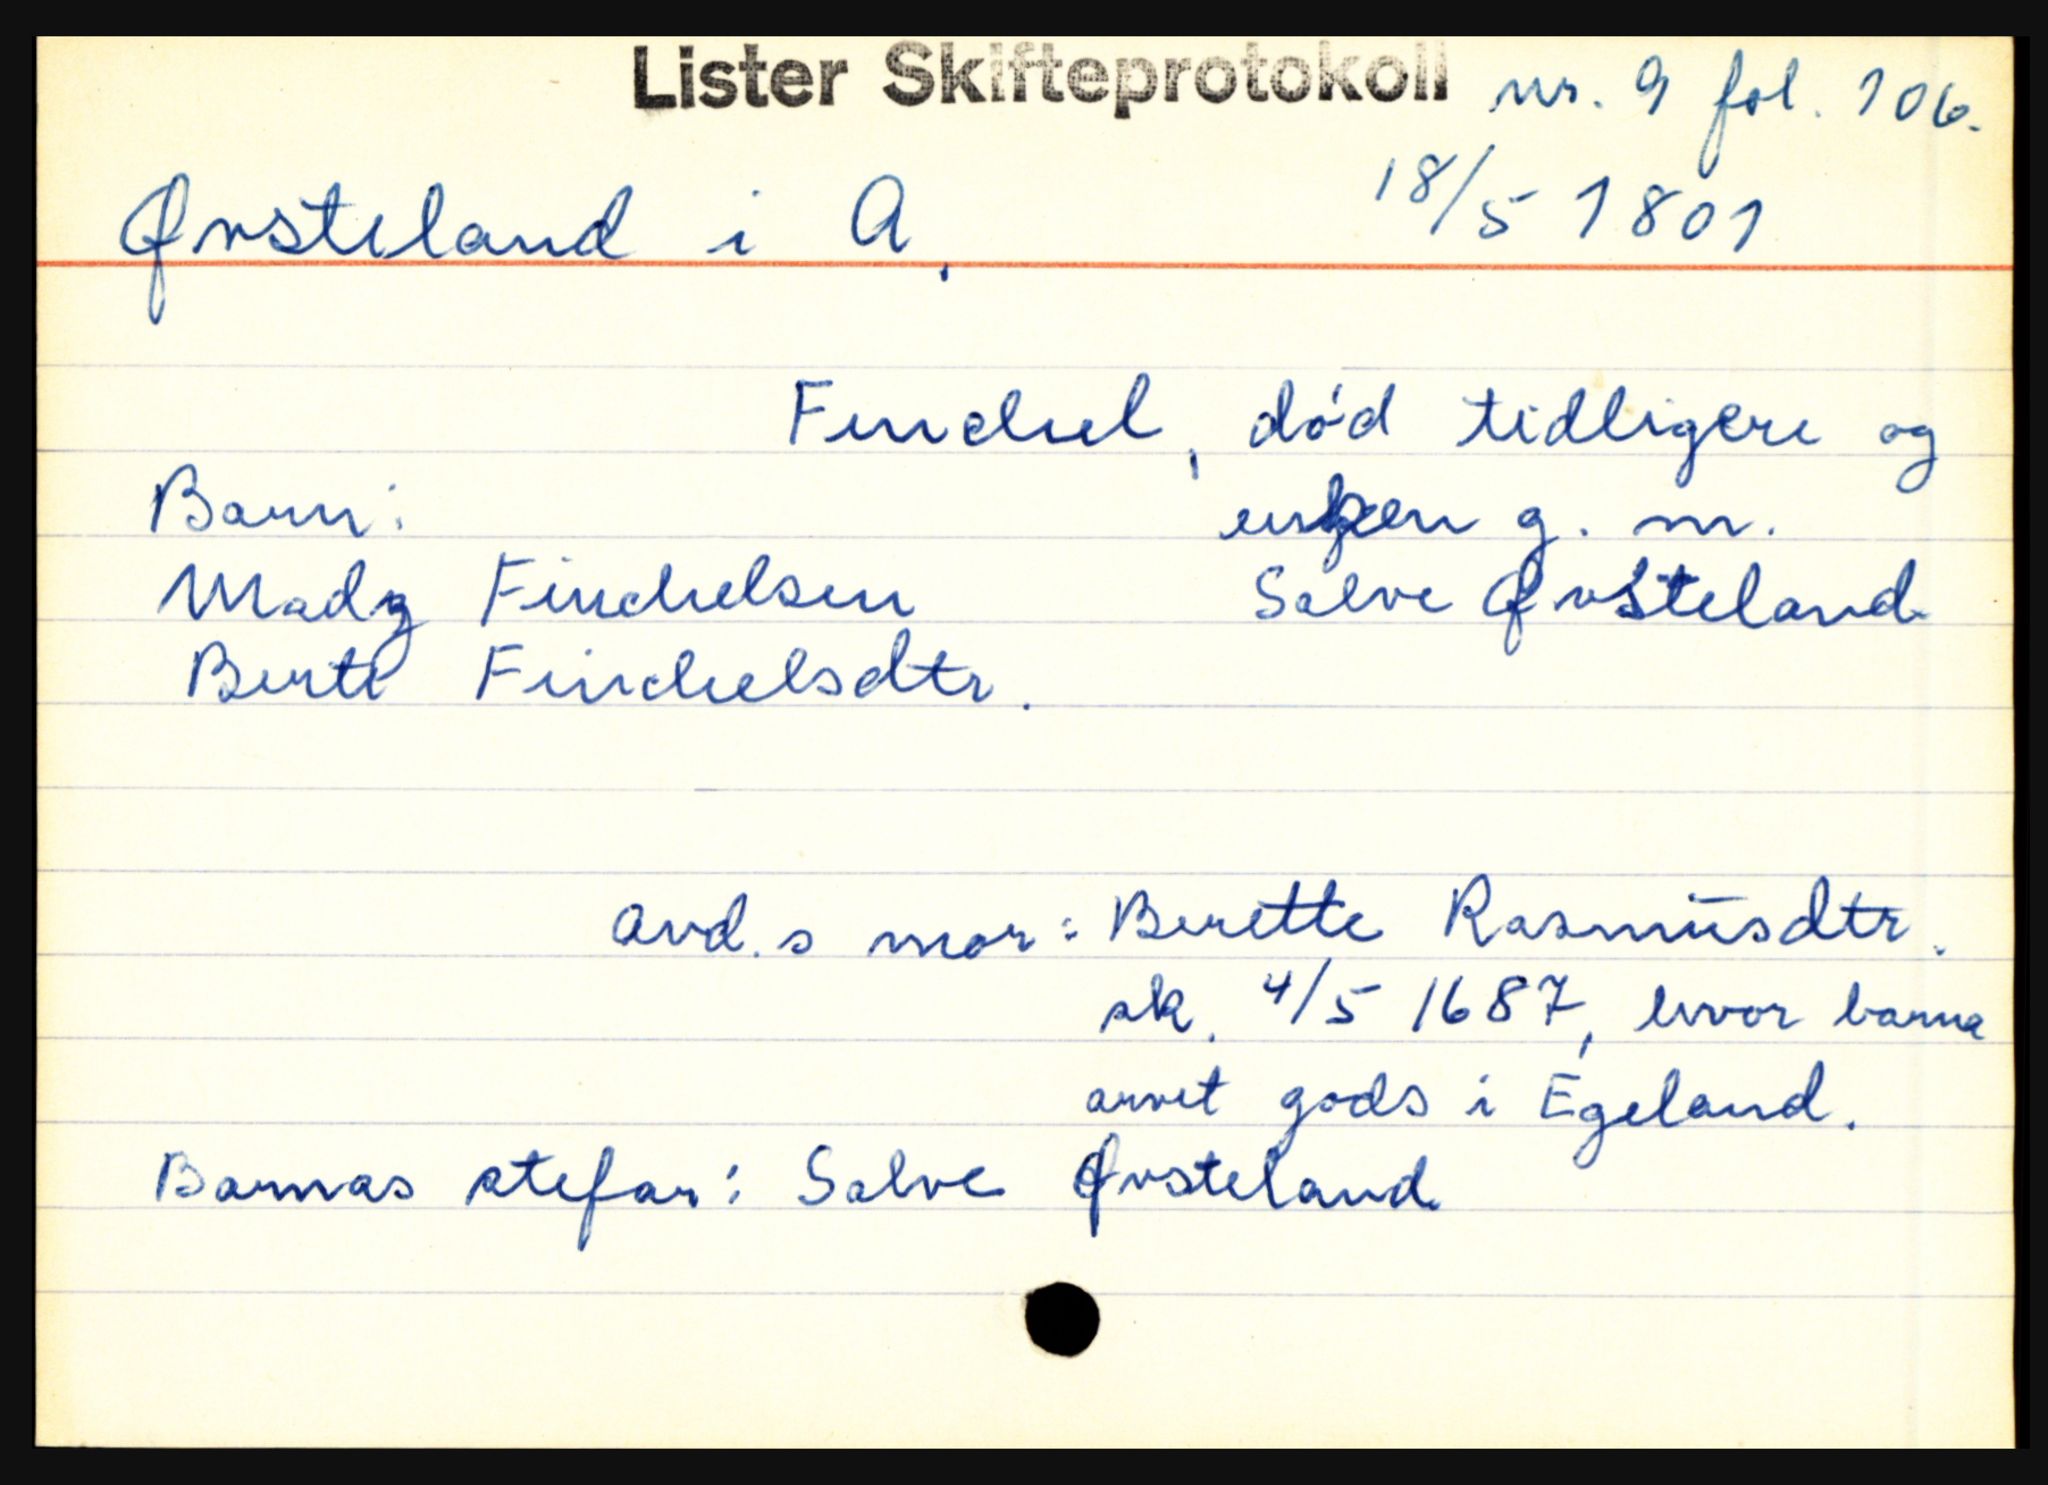 Lister Skifteprotokoll nr. 9 fol. 106.
Øvsteland i A. 18/5 1801
Finchel, død tidligere og
Barn: enken g. m.
Mads Finchelsen Salve Øvsteland
Berte Finchelsdtr.
avd.s mor: Berette Rasmusdtr.
sk. 4/5 1687, hvor barna
arvet gods i Egeland.
Barnas stefar: Salve Øvsteland